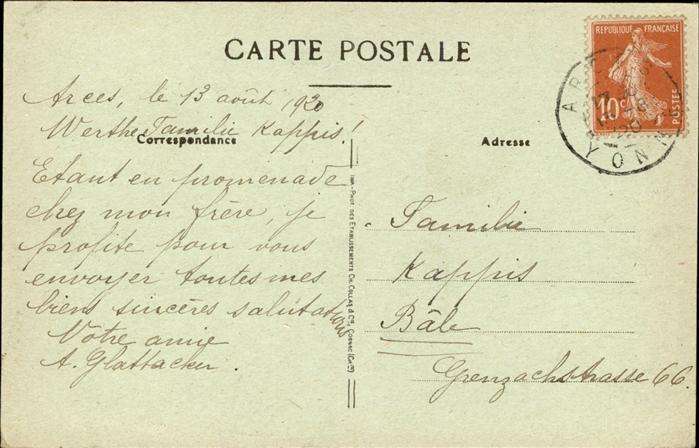 CARTE POSTALE
RÉPUBLIQUE FRANÇAISE
10 c
POSTES
YONNE
Arces, le 13 août 1920
Werthe Familie Kappis!
Correspondance
Adresse
Etant en promenade
chez mon frère, je
profite pour vous
envoyer toutes mes
biens sincères salutations
Votre amie
A. Glattacker.
PHOT. DES ETABLISSEMENTS CH. COLLAS & Cie, COGNAC
Familie
Kappis
Bâle
Grenzachstrasse 66.